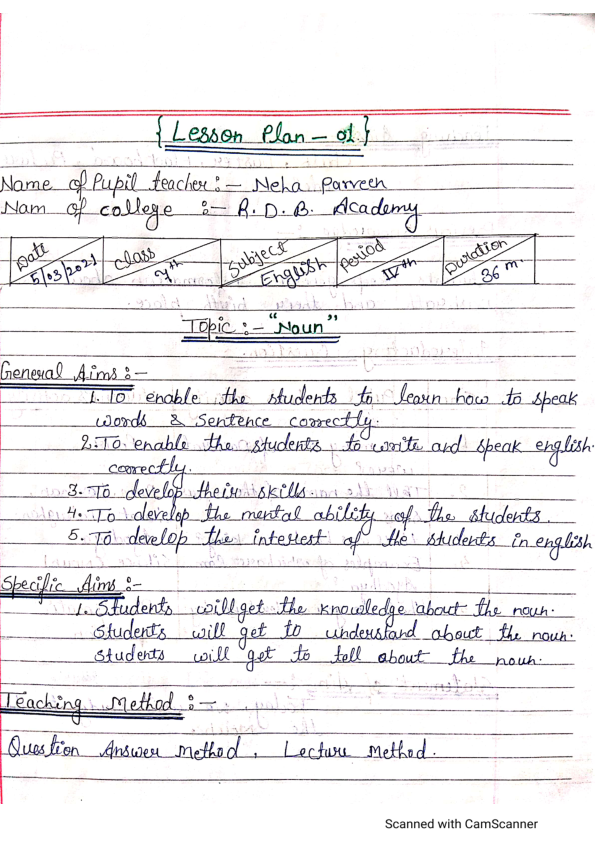 { Lesson Plan – 01 }
Name of Pupil teacher :– Neha Parveen
Nam of college :– R. D. B. Academy
Date 5/03/2021 Class 7th Subject English Period IVth Duration 36 m.
Topic :– "Noun"
General Aims :–
1. To enable the students to learn how to speak
words & Sentence correctly.
2. To enable the students to write and speak english
correctly.
3. To develop their skills.
4. To develop the mental ability of the students.
5. To develop the interest of the students in english
Specific Aims :–
1. Students will get the knowledge about the noun.
Students will get to understand about the noun.
Students will get to tell about the noun.
Teaching Method :–
Question Answer Method, Lecture Method.
Scanned with CamScanner